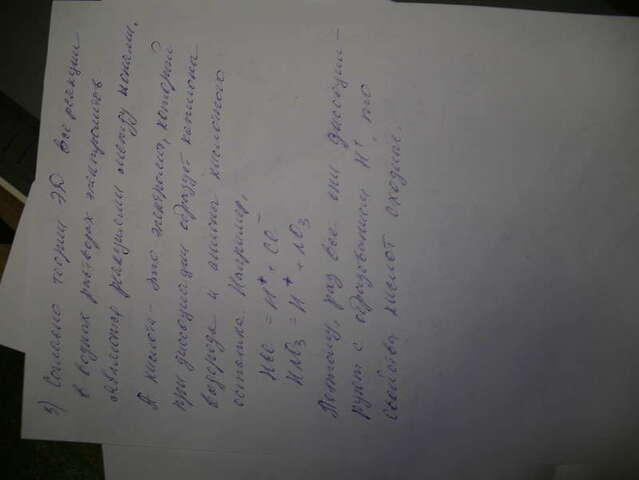 3) Согласно теории ЭД все реакции
в водных растворах электролитов
являются реакциями между ионами.
А кислота - это электролит, который
при диссоциации образует катионы
водорода и анионы кислотного
остатка. Например,
HCl = H⁺ + Cl⁻
HNO₃ = H⁺ + NO₃
Поэтому, раз все они диссоции-
руют с образованием H⁺, то
свойства кислот сходные.